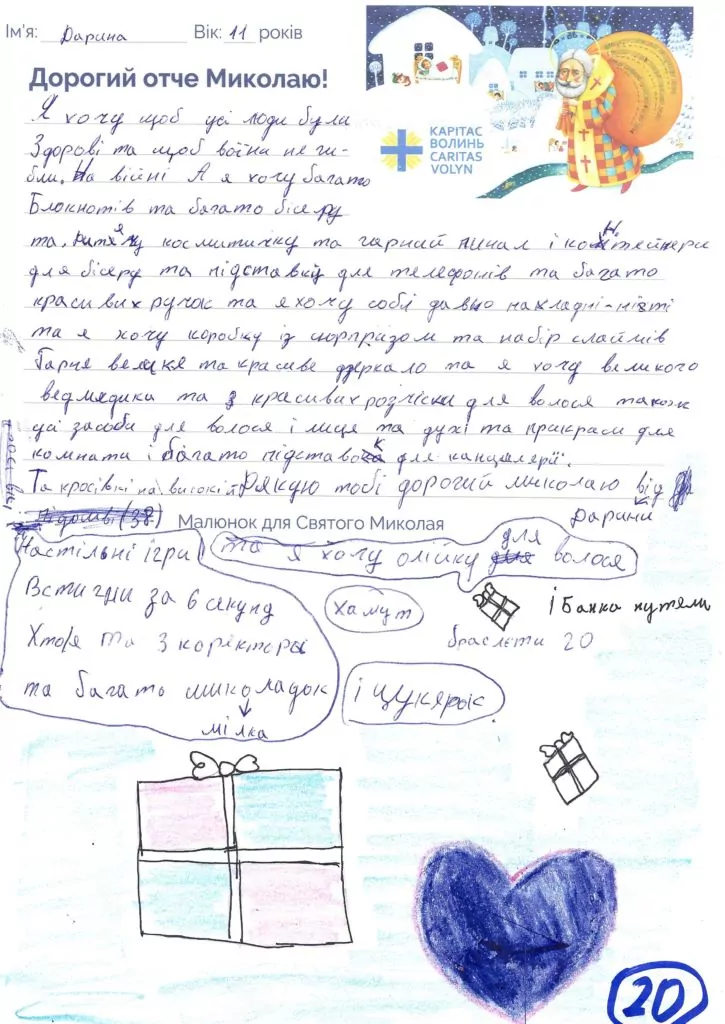 Ім'я: Дарина Вік: 11 років
Дорогий отче Миколаю!
КАРІТАС
ВОЛИНЬ
CARITAS
VOLYN
Я хочу щоб усі люди були
Здорові та щоб воїни не ги-
бли. На війні А я хочу багато
Блокнотів та багато бісеру
та. косметичку та гарний пинал і контейнери
для бісеру та підставку для телефонів та багато
красивих ручок та я хочу собі давно накладні-нігті
та я хочу коробку із сюрпризом та набір слаймів
Гарне велике та красиве дзеркало та я хочу великого
ведмедика та 3 красивих розчіски для волося також
усі засоби для волося і лице та духі та прикраси для
комнати і багато підставок для канцелярії.
Та кросівкі на високій Дякую тобі дорогий миколаю від
підошві (38)
Дарини
Малюнок для Святого Миколая
Настільні ігри
Встигни за 6 секунд
Хто я та 3 коректори
та багато шиколадок
мілка
та я хочу олійку для волося
хамут
і Банка нутели
браслети 20
і цукерок
20